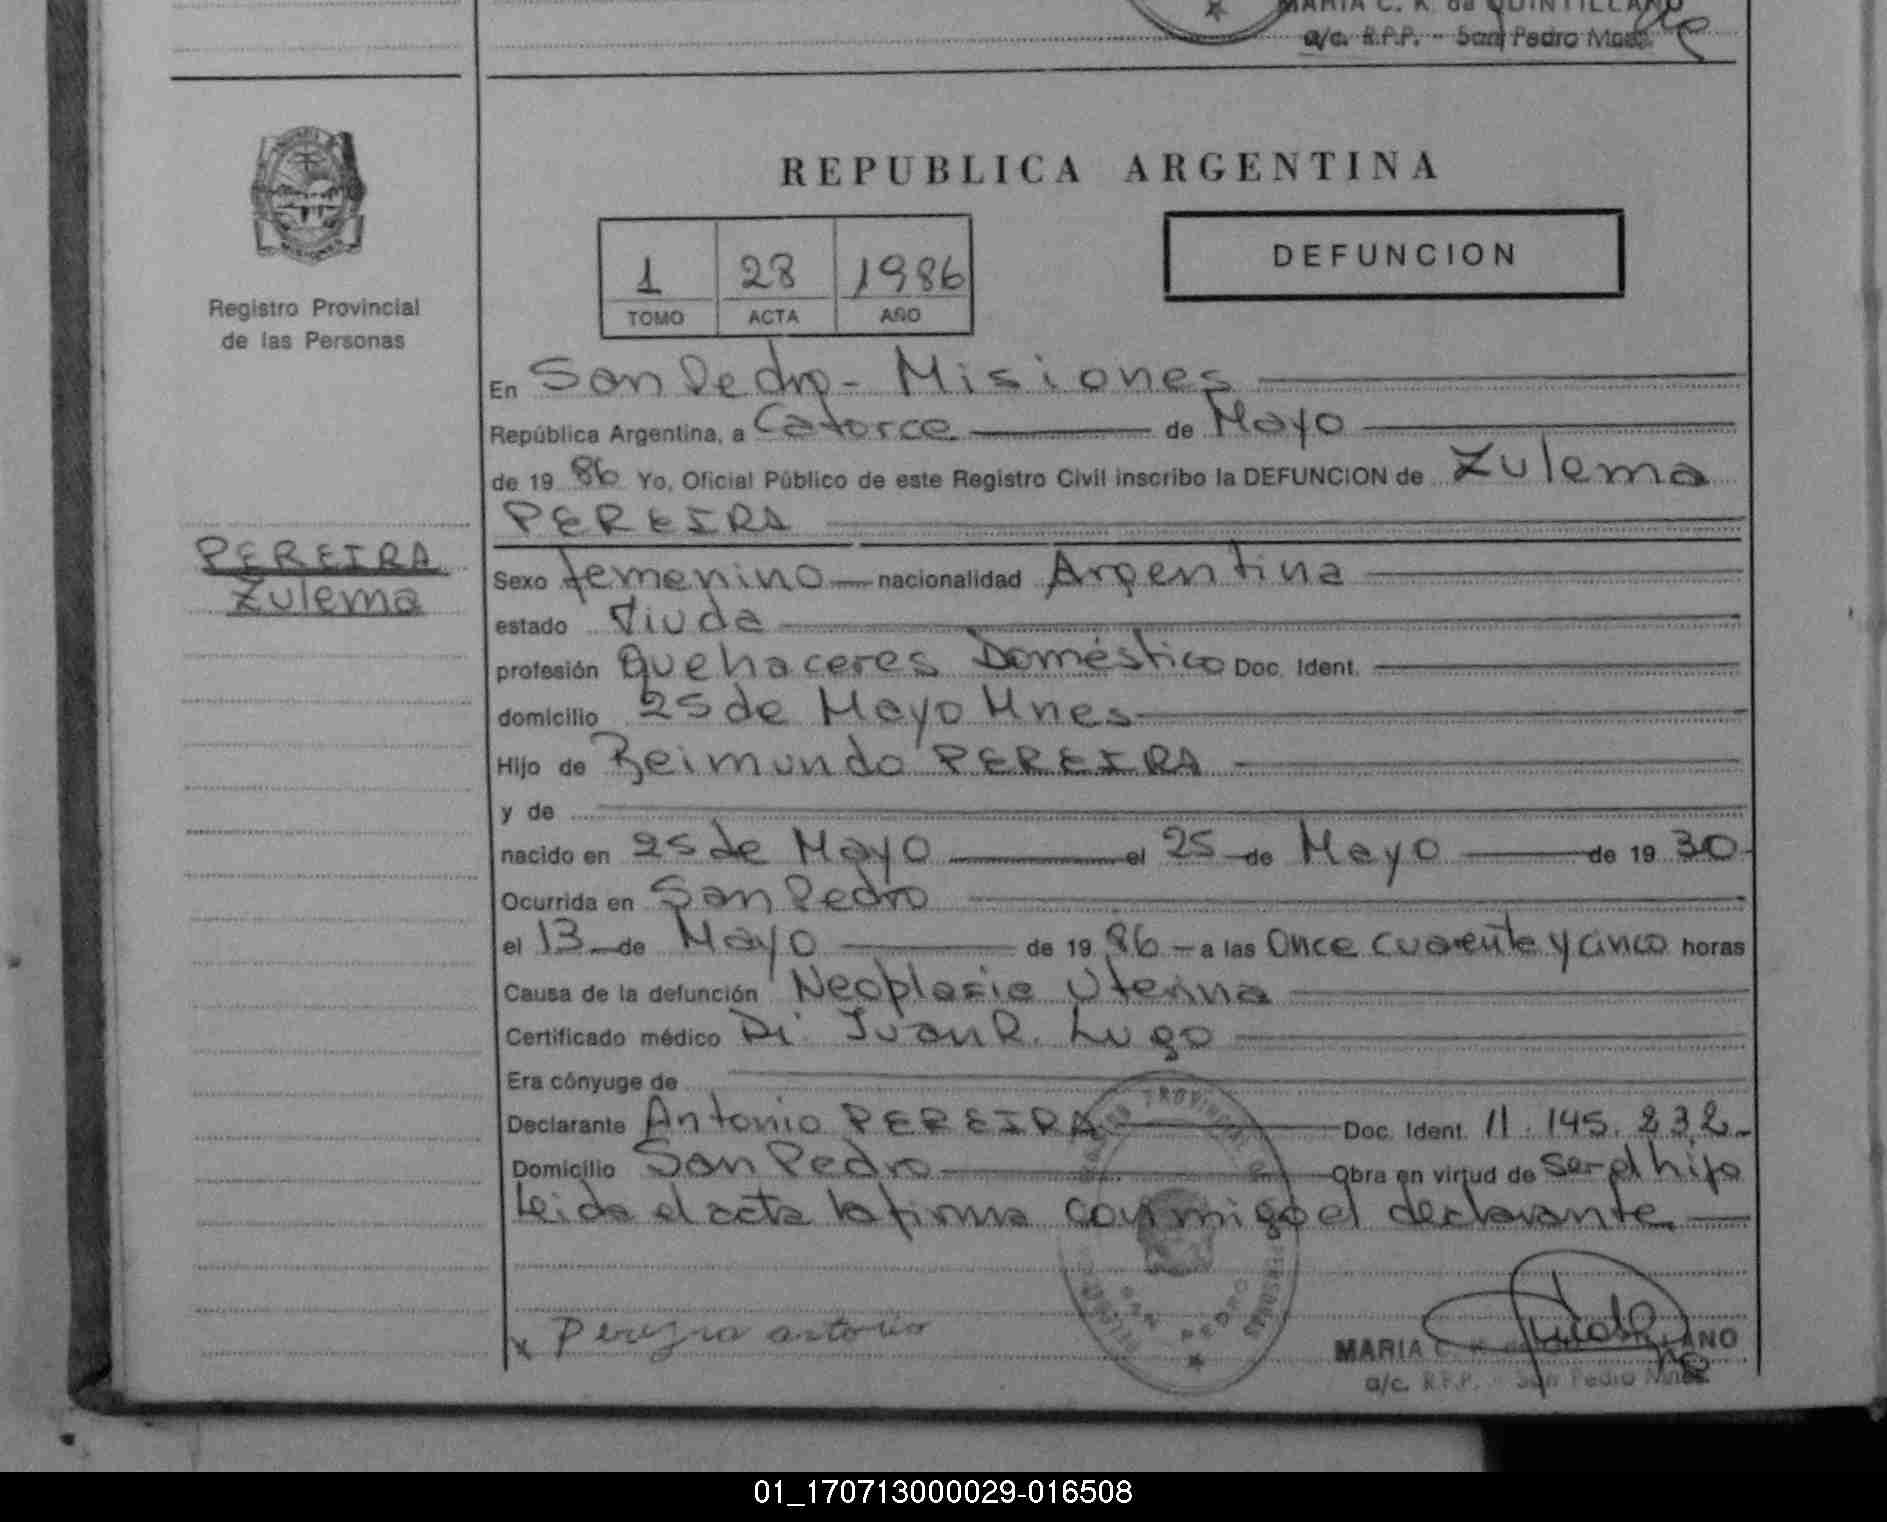 MARIA C. K. de QUINTILLANO
a/c. R.P.P. - San Pedro Mnes.
MISIONES
Registro Provincial
de las Personas
PEREIRA
Zulema
REPUBLICA ARGENTINA
1 28 1986
TOMO ACTA AÑO
DEFUNCION
En San Pedro - Misiones
República Argentina, a Catorce de Mayo
de 19 86 Yo, Oficial Público de este Registro Civil inscribo la DEFUNCION de Zulema
PEREIRA
Sexo femenino nacionalidad Argentina
estado Viuda
profesión Quehaceres Doméstico Doc. Ident.
domicilio 25 de Mayo Mnes
Hijo de Reimundo PEREIRA
y de
nacido en 25 de Mayo el 25 de Mayo de 19 30
Ocurrida en San Pedro
el 13 de Mayo de 19 86 a las Once cuarenta y cinco horas
Causa de la defunción Neoplasia Uterina
Certificado médico Dr. Juan R. Lugo
Era cónyuge de
Declarante Antonio PEREIRA Doc. Ident. 11.145.232
Domicilio San Pedro Obra en virtud de ser el hijo
Leida el acta la firma conmigo el declarante
x Pereyra antonio
MARIA C. K. de QUINTILLANO
a/c. R.P.P. - San Pedro Mnes.
01_170713000029-016508